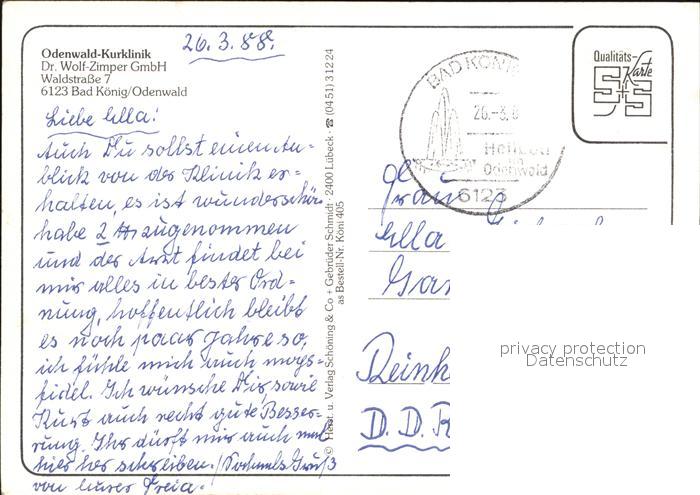 26.3.88.
Odenwald-Kurklinik
Dr. Wolf-Zimper GmbH
Waldstraße 7
6123 Bad König/Odenwald
Liebe Ella!
Auch Du sollst einen An-
blick von der Klinik er-
halten, es ist wunderschön
habe 2 ℔ zugenommen
und der Arzt findet bei
mir alles in bester Ord-
nung, hoffentlich bleibt
es noch paar Jahre so,
ich fühle mich auch mops-
fidel. Ich wünsche Dir sowie
Kurt auch recht gute Besser-
rung. Ihr dürft mir auch mal
hier her schreiben. Nochmals Gruß
von Eurer Freia.
© Herst. u. Verlag Schöning & Co + Gebrüder Schmidt · 2400 Lübeck · ☎ (0451) 31224
as Bestell-Nr. Köni 405
BAD KÖNI
26.-3.8
Heilbad
im
Odenwald
6123
Qualitäts-
Karte
S+S
Frau
Ella
Reinh
D.D.R
privacy protection
Datenschutz